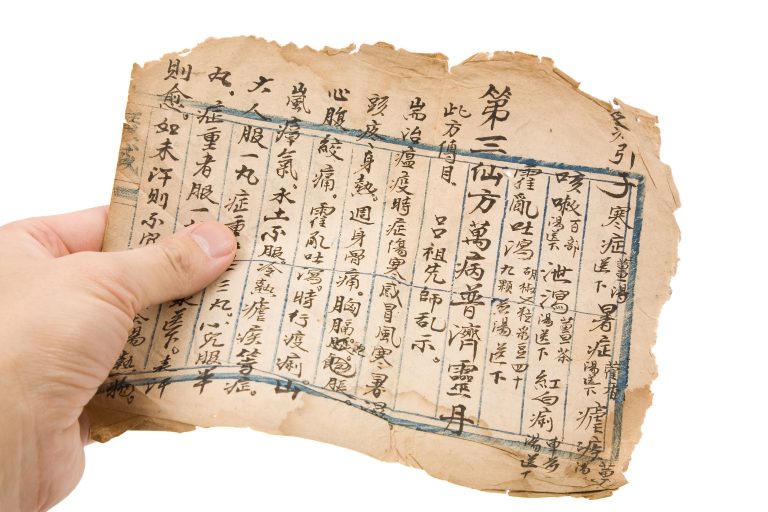 引子寒症薑湯送下暑症香薷湯送下瘧疾
咳嗽百部湯送下泄瀉薑茶湯送下紅白痢車前湯送下
霍亂吐瀉胡椒粒菉豆四十九顆煎湯送下
第三仙方萬病普濟靈丹
此方傳自 呂祖先師乩示。
耑治瘟疫時症傷寒感冒風寒暑
頭疼身熱。週身骨痛。胸膈膨脹
心腹絞痛。霍乱吐瀉。時行疫痢。山
嵐瘴氣。水土不服。冷熱瘧疾等症。
大人服一丸症重三丸。小兒服半
丸。症重者服一水送下。汗
則愈。如未汗則不宜熱粥。